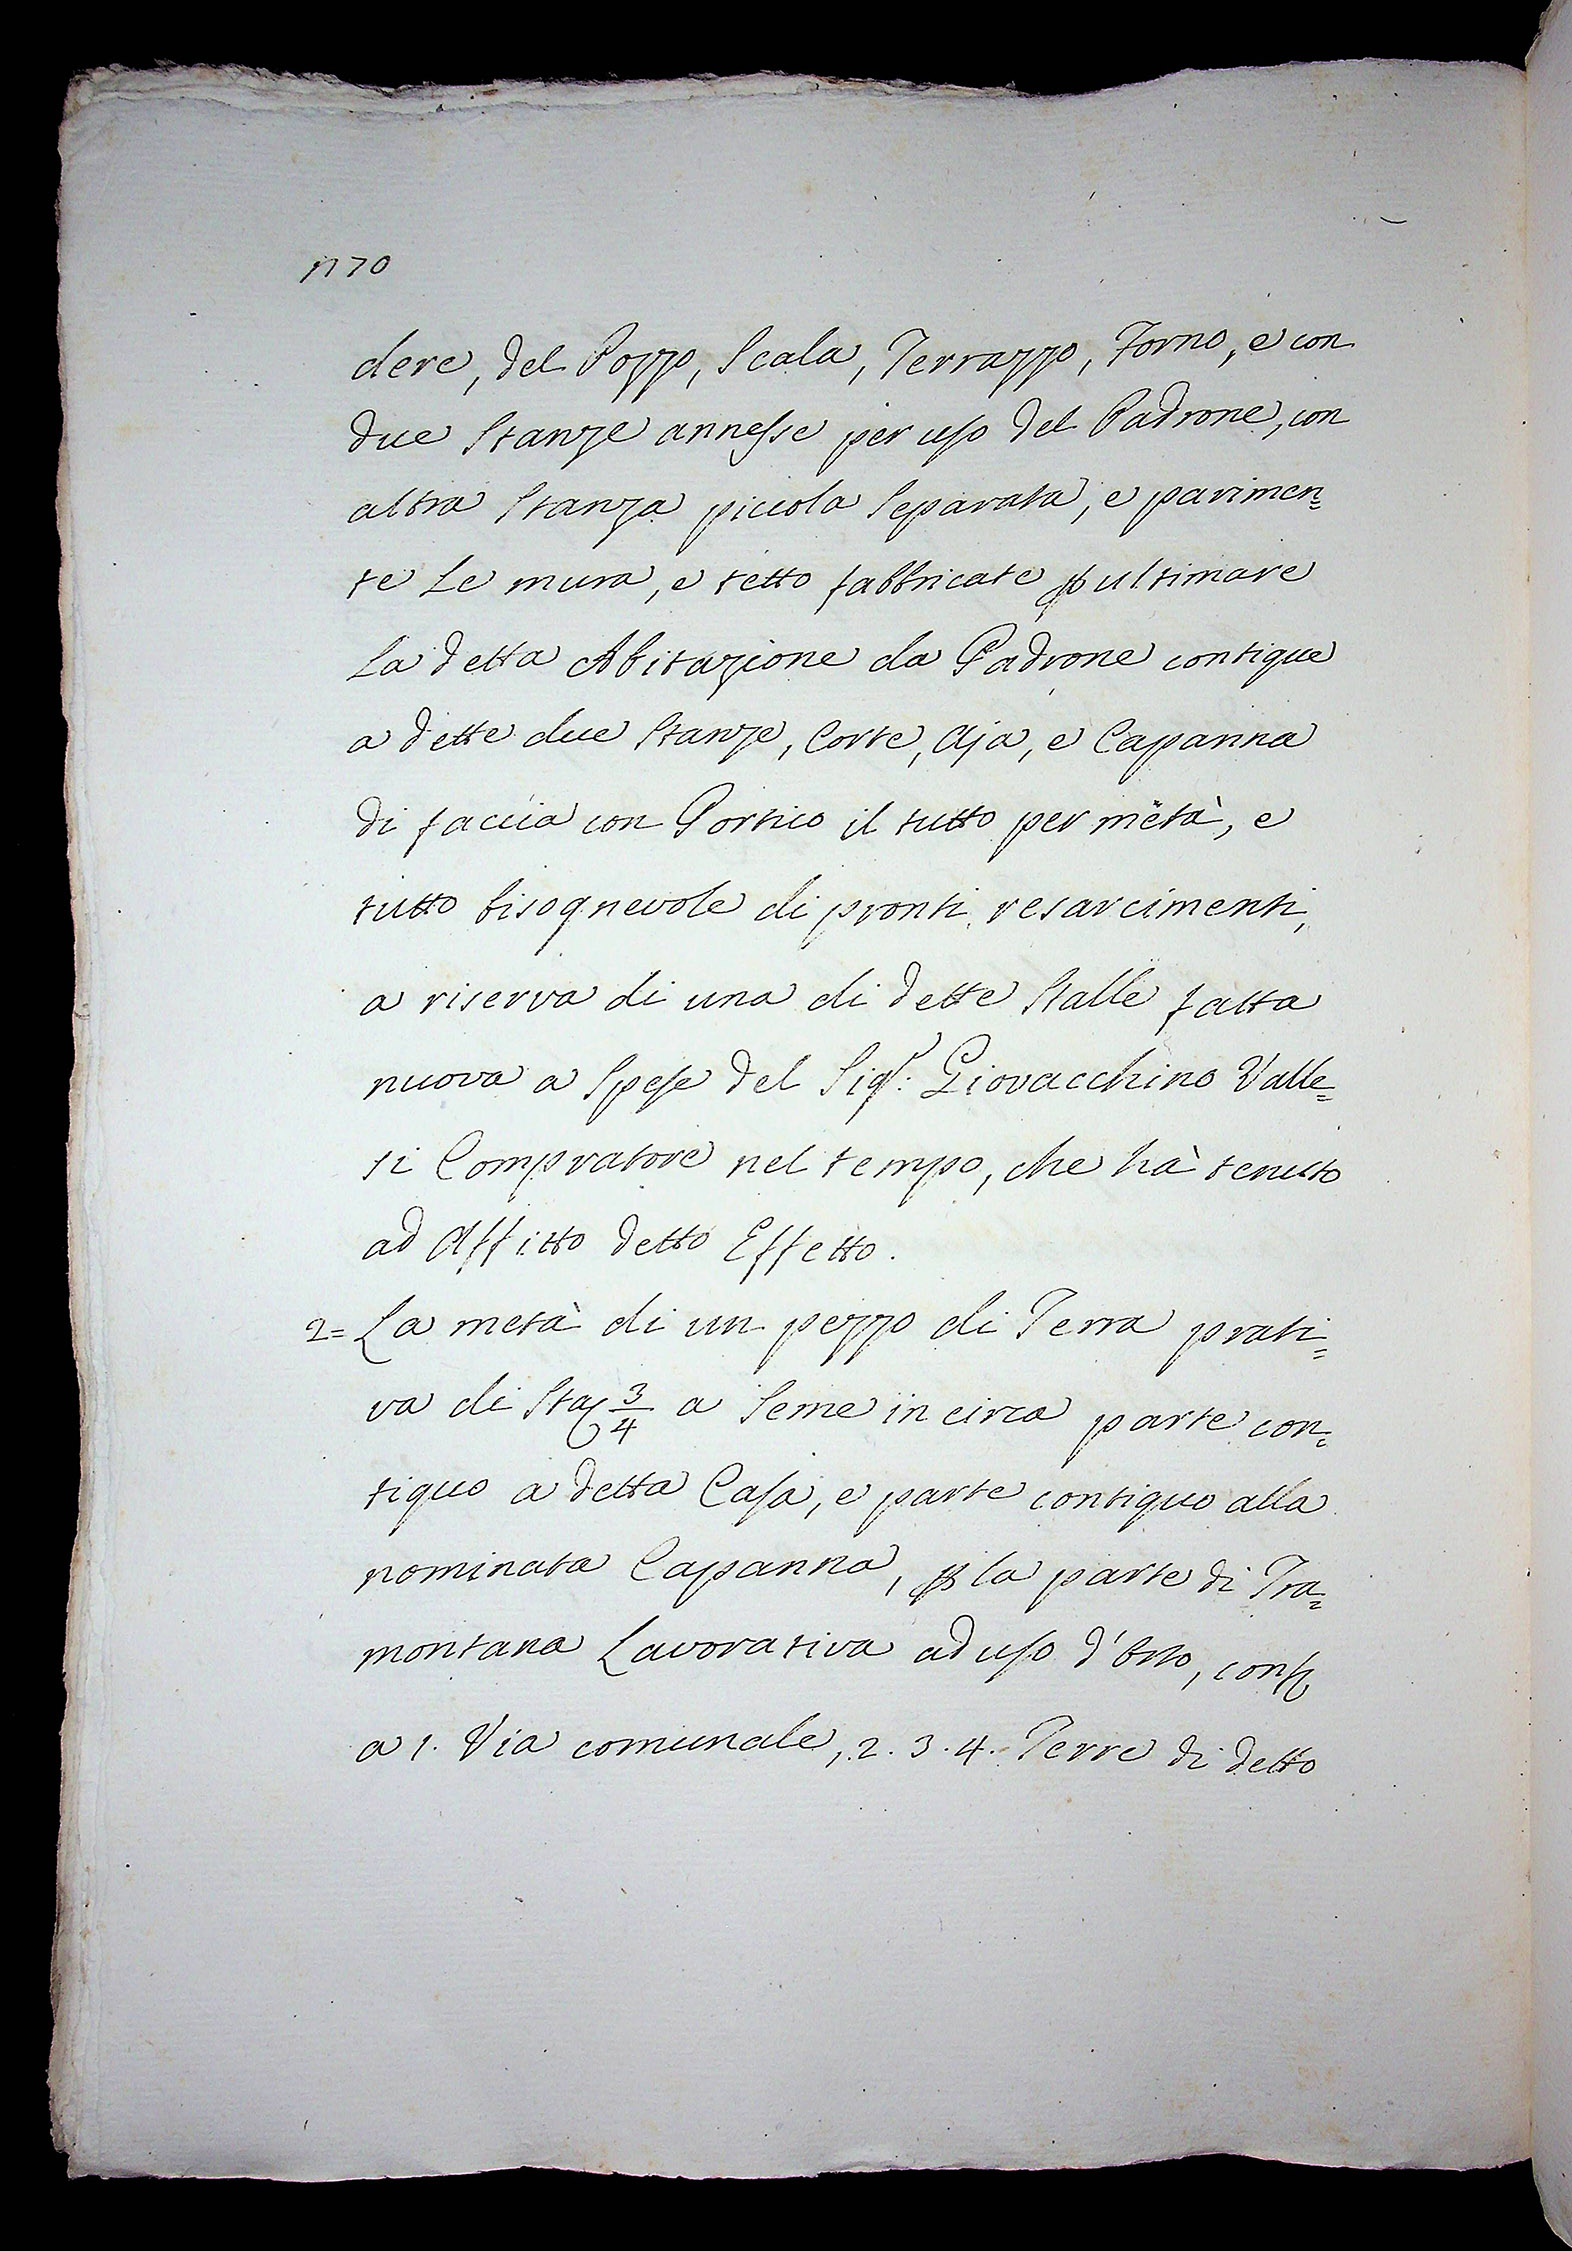 1770
dere, del Pozzo, Scala, Terrazzo, Forno, e con
due Stanze annesse per uso del Padrone, con
altra Stanza piccola Separata, e parimen=
te Le mura, e tetto fabbricate p ultimare
La detta Abitazione da Padrone contigue
a dette due Stanze, Corte, Aja, e Capanna
di faccia con Portico il tutto per metà, e
tutto bisognevole di pronti resarcimenti,
a riserva di una di dette Stalle fatta
nuova a Spese del Sigr: Giovacchino Valle=
si Compratore nel tempo, che hà tenuto
ad Affitto detto Effetto.
2= La metà di un pezzo di Terra prati=
va di Sta 3/4 a Seme in circa parte con=
tiguo a detta Casa, e parte contiguo alla
nominata Capanna, p la parte di Tra=
montana Lavorativa ad uso d'Orto, conf
a 1. Via comunale, 2. 3. 4. Terre di detto